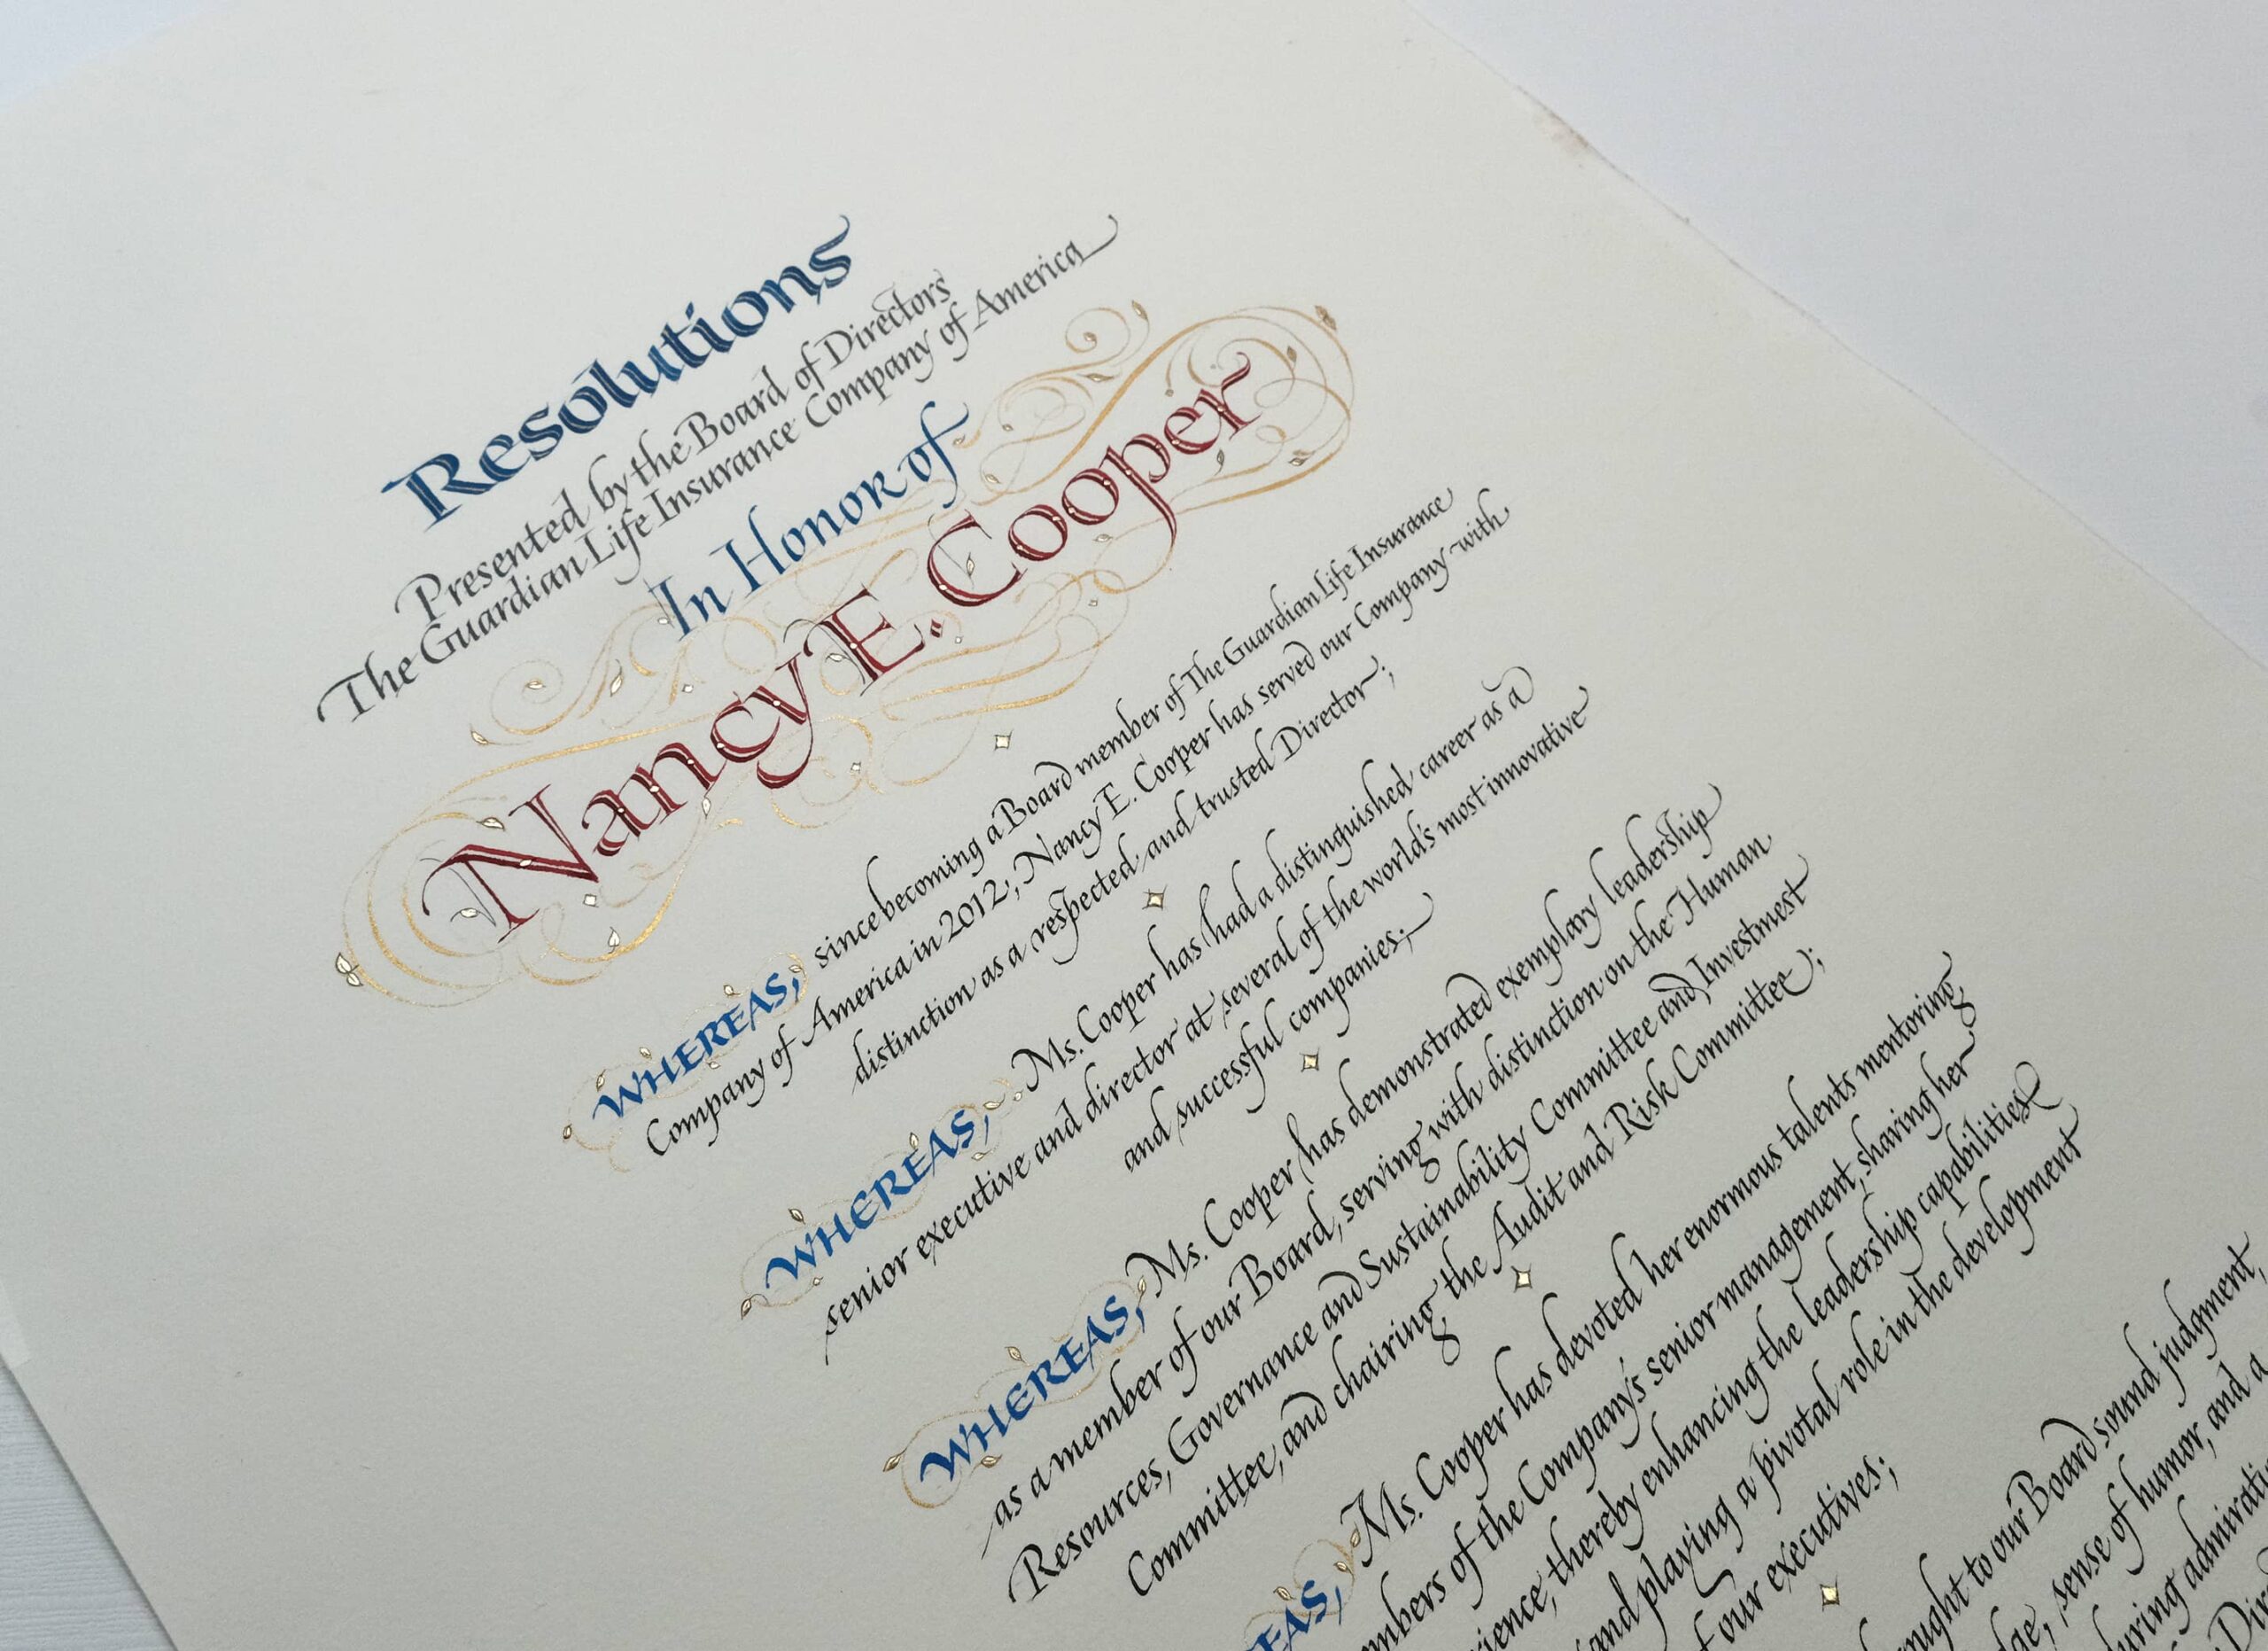 Resolutions
Presented by the Board of Directors
The Guardian Life Insurance Company of America
In Honor of
Nancy E. Cooper
WHEREAS, since becoming a Board member of The Guardian Life Insurance
Company of America in 2012, Nancy E. Cooper has served our Company with
distinction as a respected and trusted Director;
WHEREAS, Ms. Cooper has had a distinguished career as a
senior executive and director at several of the world's most innovative
and successful companies;
WHEREAS, Ms. Cooper has demonstrated exemplary leadership
as a member of our Board, serving with distinction on the Human
Resources, Governance and Sustainability Committee and Investment
Committee, and chairing the Audit and Risk Committee;
EAS, Ms. Cooper has devoted her enormous talents mentoring
mbers of the Company's senior management, sharing her
ience, thereby enhancing the leadership capabilities
and playing a pivotal role in the development
f our executives;
ught to our Board sound judgment,
ge, sense of humor, and a
uring admiratio
Dir